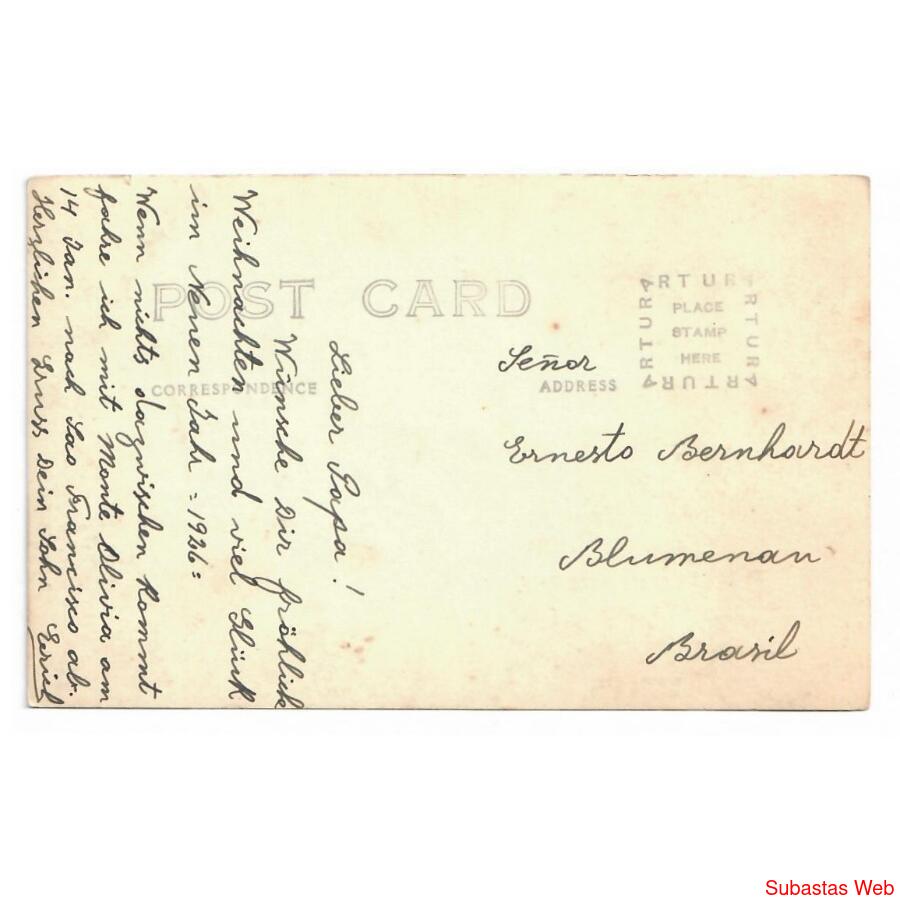 POST CARD
CORRESPONDENCE
ADDRESS
ARTURA
PLACE
STAMP
HERE
ARTURA
ARTURA
ARTURA
Lieber Papa!
Wünsche Dir fröhlich
Weihnachten und viel Glück
im Neuen Jahr = 1926 =
Wenn nichts dazwischen kommt
fahre ich mit Monte Olivia am
14 Jan. nach Sao Francisco ab.
Herzlichen Gruss Dein Sohn
Señor
Ernesto Bernhardt
Blumenau
Brasil
Subastas Web